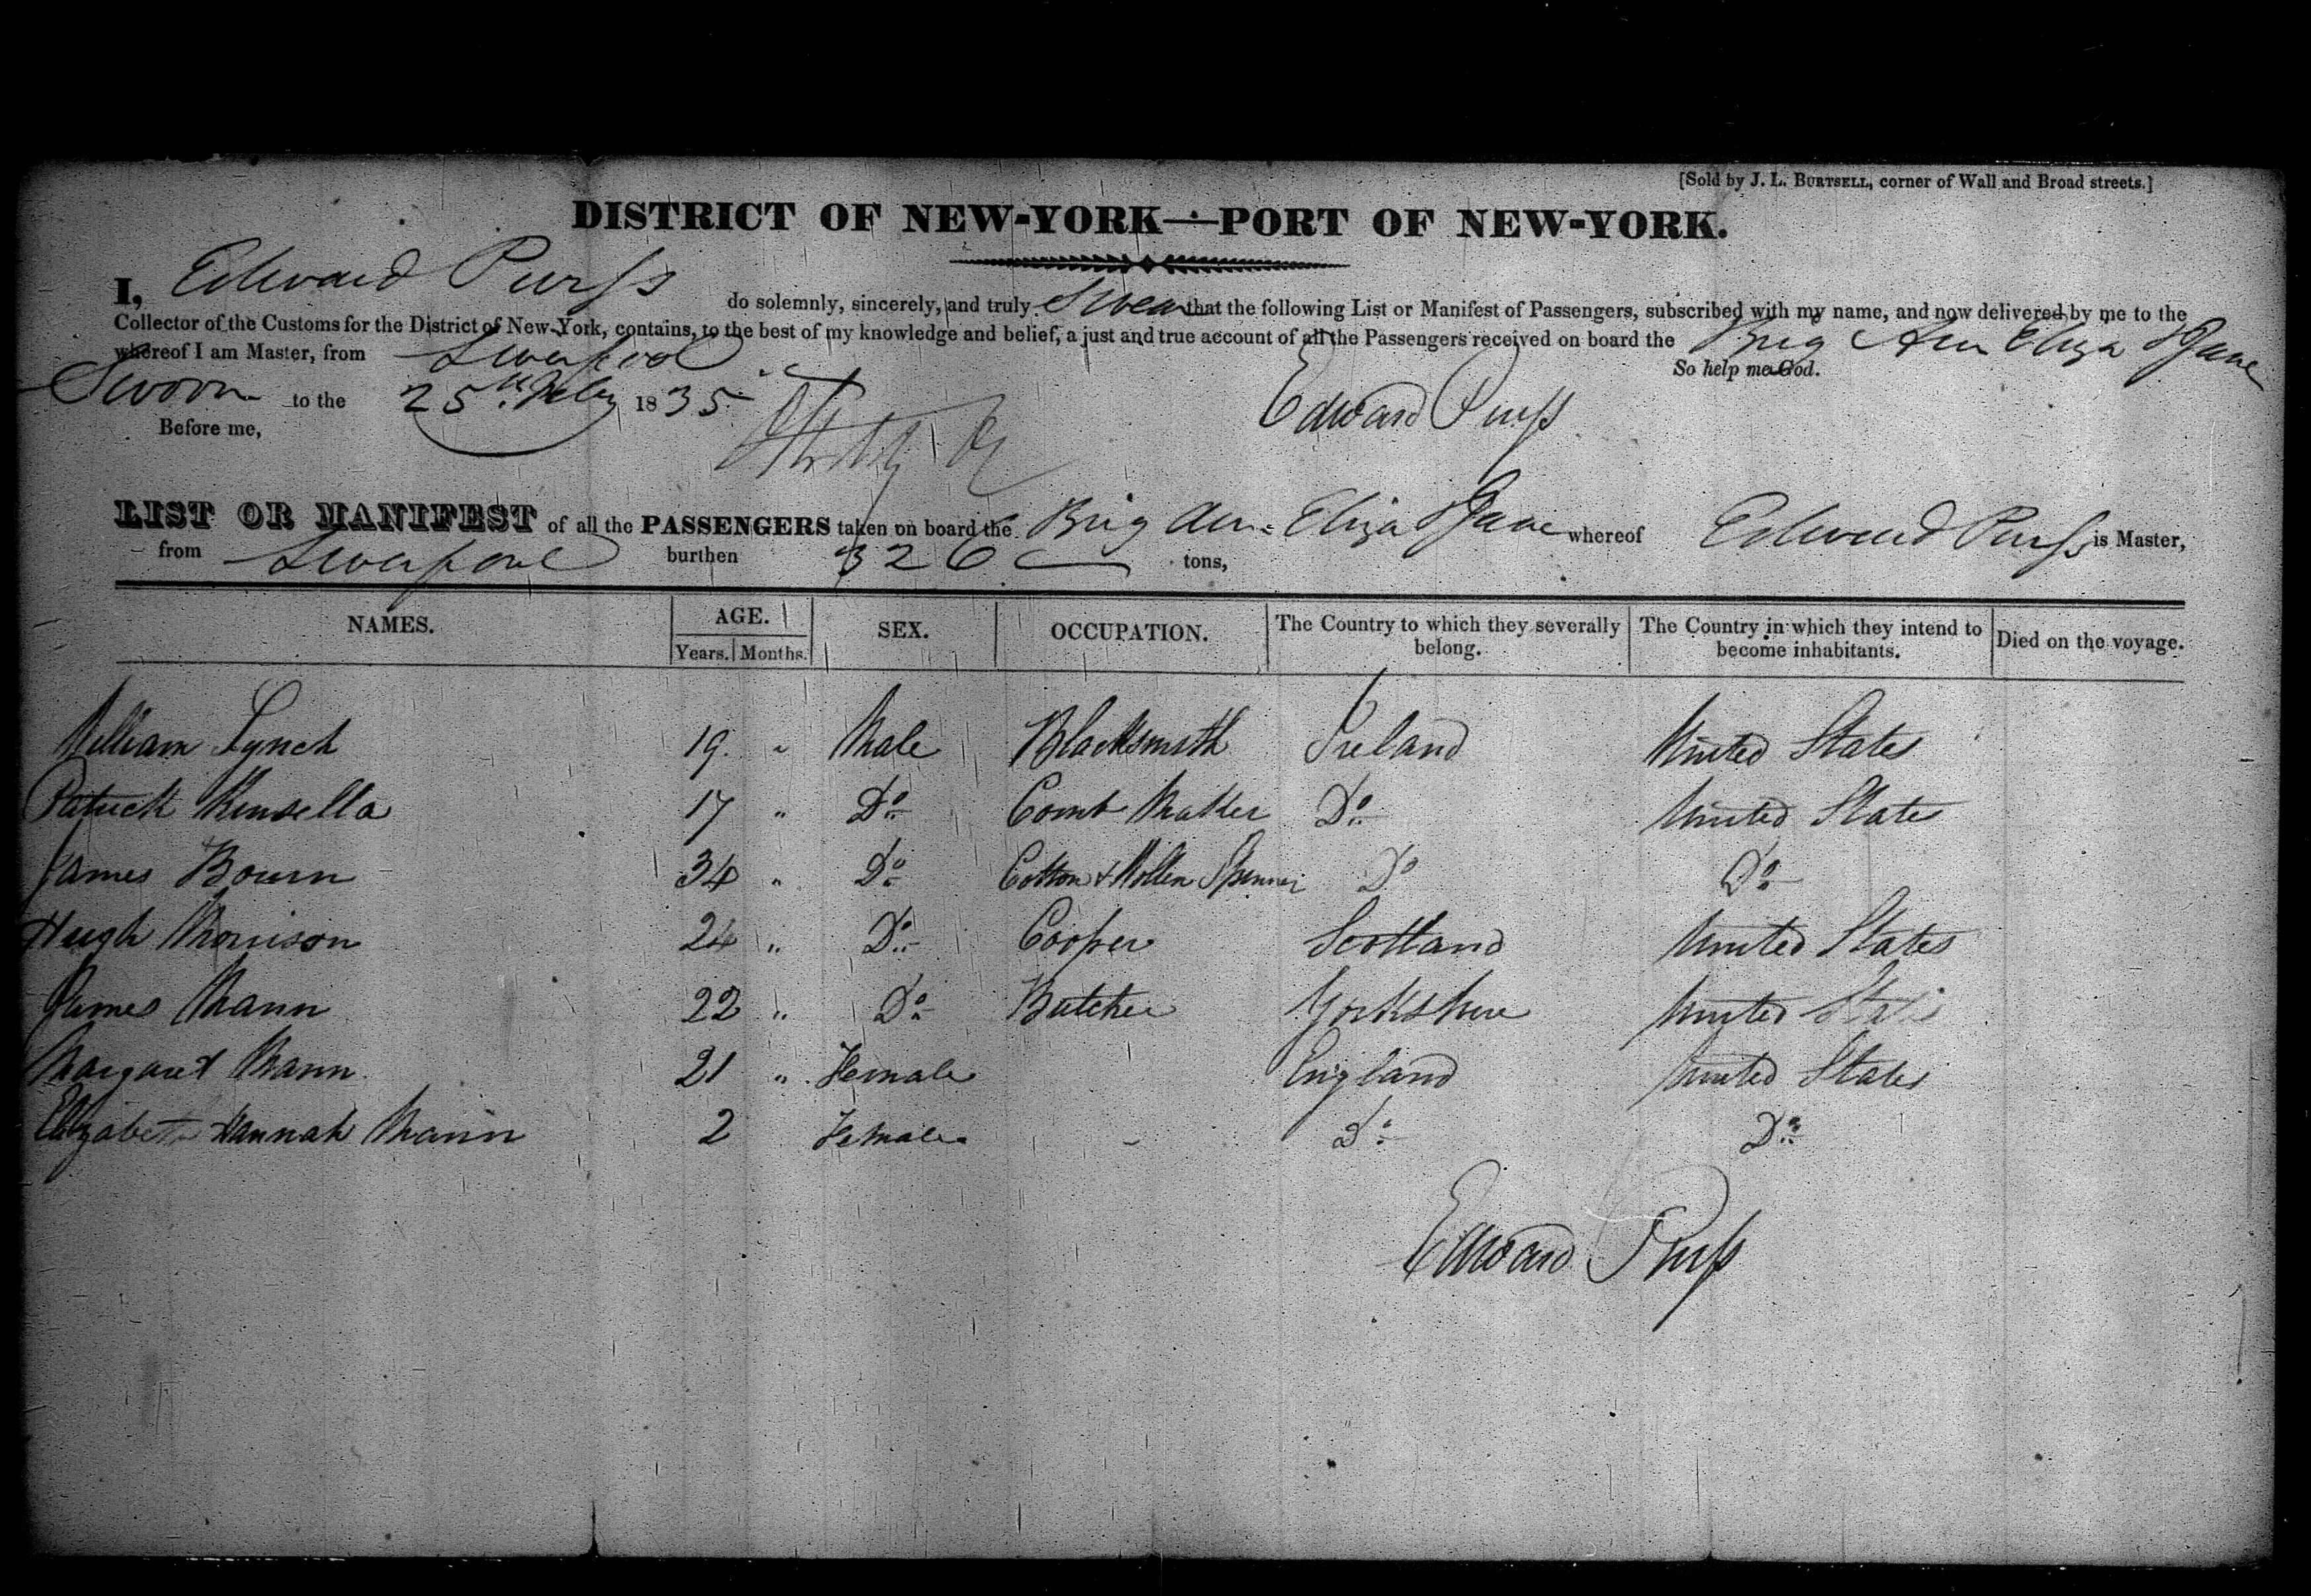 [Sold by J. L. BURTSELL, corner of Wall and Broad streets.]
DISTRICT OF NEW-YORK—PORT OF NEW-YORK.
I, Edward Purss do solemnly, sincerely, and truly Swear that the following List or Manifest of Passengers, subscribed with my name, and now delivered by me to the
Collector of the Customs for the District of New-York, contains, to the best of my knowledge and belief, a just and true account of all the Passengers received on board the Brig Ann Eliza & Jane
whereof I am Master, from Liverpool So help me God.
Sworn to the 25th 1835
Before me,
Edward Purss
LIST OR MANIFEST of all the PASSENGERS taken on board the Brig Ann Eliza & Jane whereof Edward Purss is Master,
from Liverpool burthen 326 tons,
NAMES. AGE. SEX. OCCUPATION. The Country to which they severally belong. The Country in which they intend to become inhabitants. Died on the voyage.
Years. Months.
William Lynch 19 " Male Blacksmith Ireland United States
Patrick Kinsella 17 " Do Comb Maker Do United States
James Bourn 34 " Do Cotton & Wollen Spinner Do Do
Hugh Morrison 24 " Do Cooper Scotland United States
James Mann 22 " Do Butcher Yorkshire United States
Margaret Mann 21 " Female England United States
Elizabeth Hannah Mann 2 Female - Do Do
Edward Purss